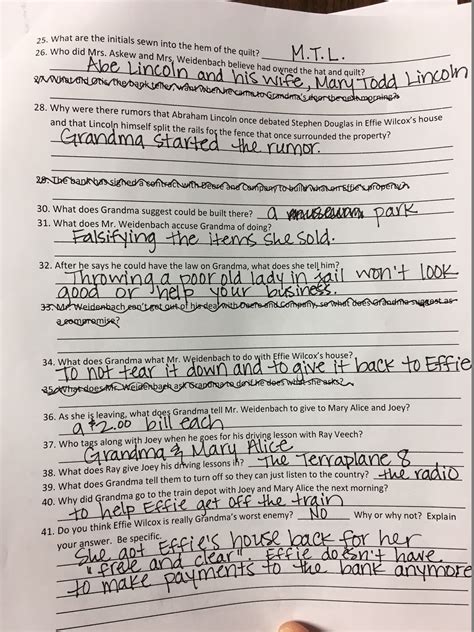 25. What are the initials sewn into the hem of the quilt? M.T.L.
26. Who did Mrs. Askew and Mrs. Weidenbach believe had owned the hat and quilt?
Abe Lincoln and his wife, Mary Todd Lincoln
28. Why were there rumors that Abraham Lincoln once debated Stephen Douglas in Effie Wilcox's house
and that Lincoln himself split the rails for the fence that once surrounded the property?
Grandma started the rumor.
30. What does Grandma suggest could be built there? a park
31. What does Mr. Weidenbach accuse Grandma of doing?
Falsifying the items she sold.
32. After he says he could have the law on Grandma, what does she tell him?
Throwing a poor old lady in jail won't look
good or help your business.
33. Mr. Weidenbach can't get out of his deal with Deere and Company, so what does Grandma suggest as
a compromise?
34. What does Grandma want Mr. Weidenbach to do with Effie Wilcox's house?
To not tear it down and to give it back to Effie
35. What does Mr. Weidenbach ask Grandma to do if he does what she asks?
36. As she is leaving, what does Grandma tell Mr. Weidenbach to give to Mary Alice and Joey?
a $2.00 bill each
37. Who tags along with Joey when he goes for his driving lesson with Ray Veech?
Grandma & Mary Alice
38. What does Ray give Joey his driving lessons in? The Terraplane 8
39. What does Grandma tell them to turn off so they can just listen to the country? the radio
40. Why did Grandma go to the train depot with Joey and Mary Alice the next morning?
to help Effie get off the train
41. Do you think Effie Wilcox is really Grandma's worst enemy? NO Why or why not? Explain
your answer. Be specific.
She got Effie's house back for her
"free and clear". Effie doesn't have
to make payments to the bank anymore